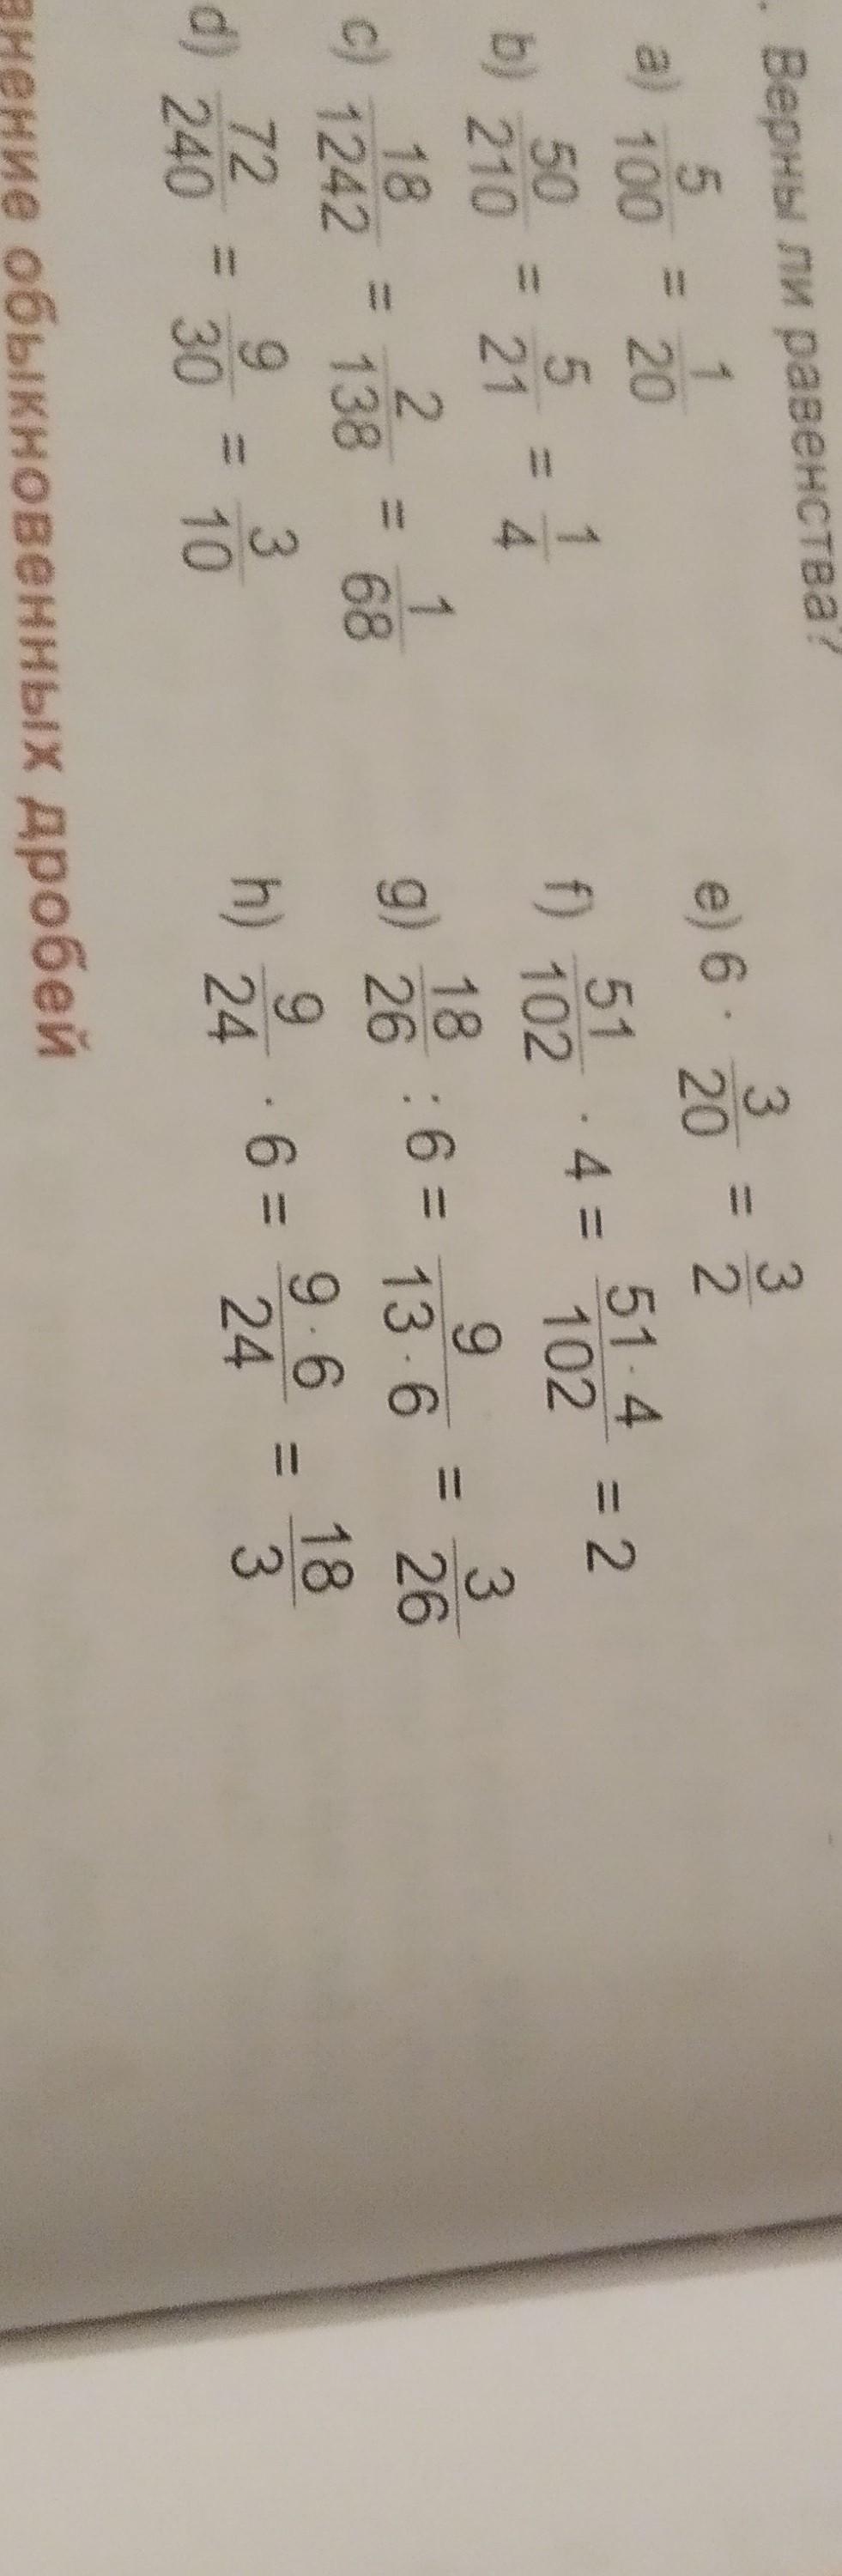 . Верны ли равенства?
a) 5/100 = 1/20
b) 50/210 = 5/21 = 1/4
c) 18/1242 = 2/138 = 1/68
d) 72/240 = 9/30 = 3/10
e) 6 · 3/20 = 3/2
f) 51/102 · 4 = 51·4/102 = 2
g) 18/26 : 6 = 9/13·6 = 3/26
h) 9/24 · 6 = 9·6/24 = 18/3
нение обыкновенных дробей